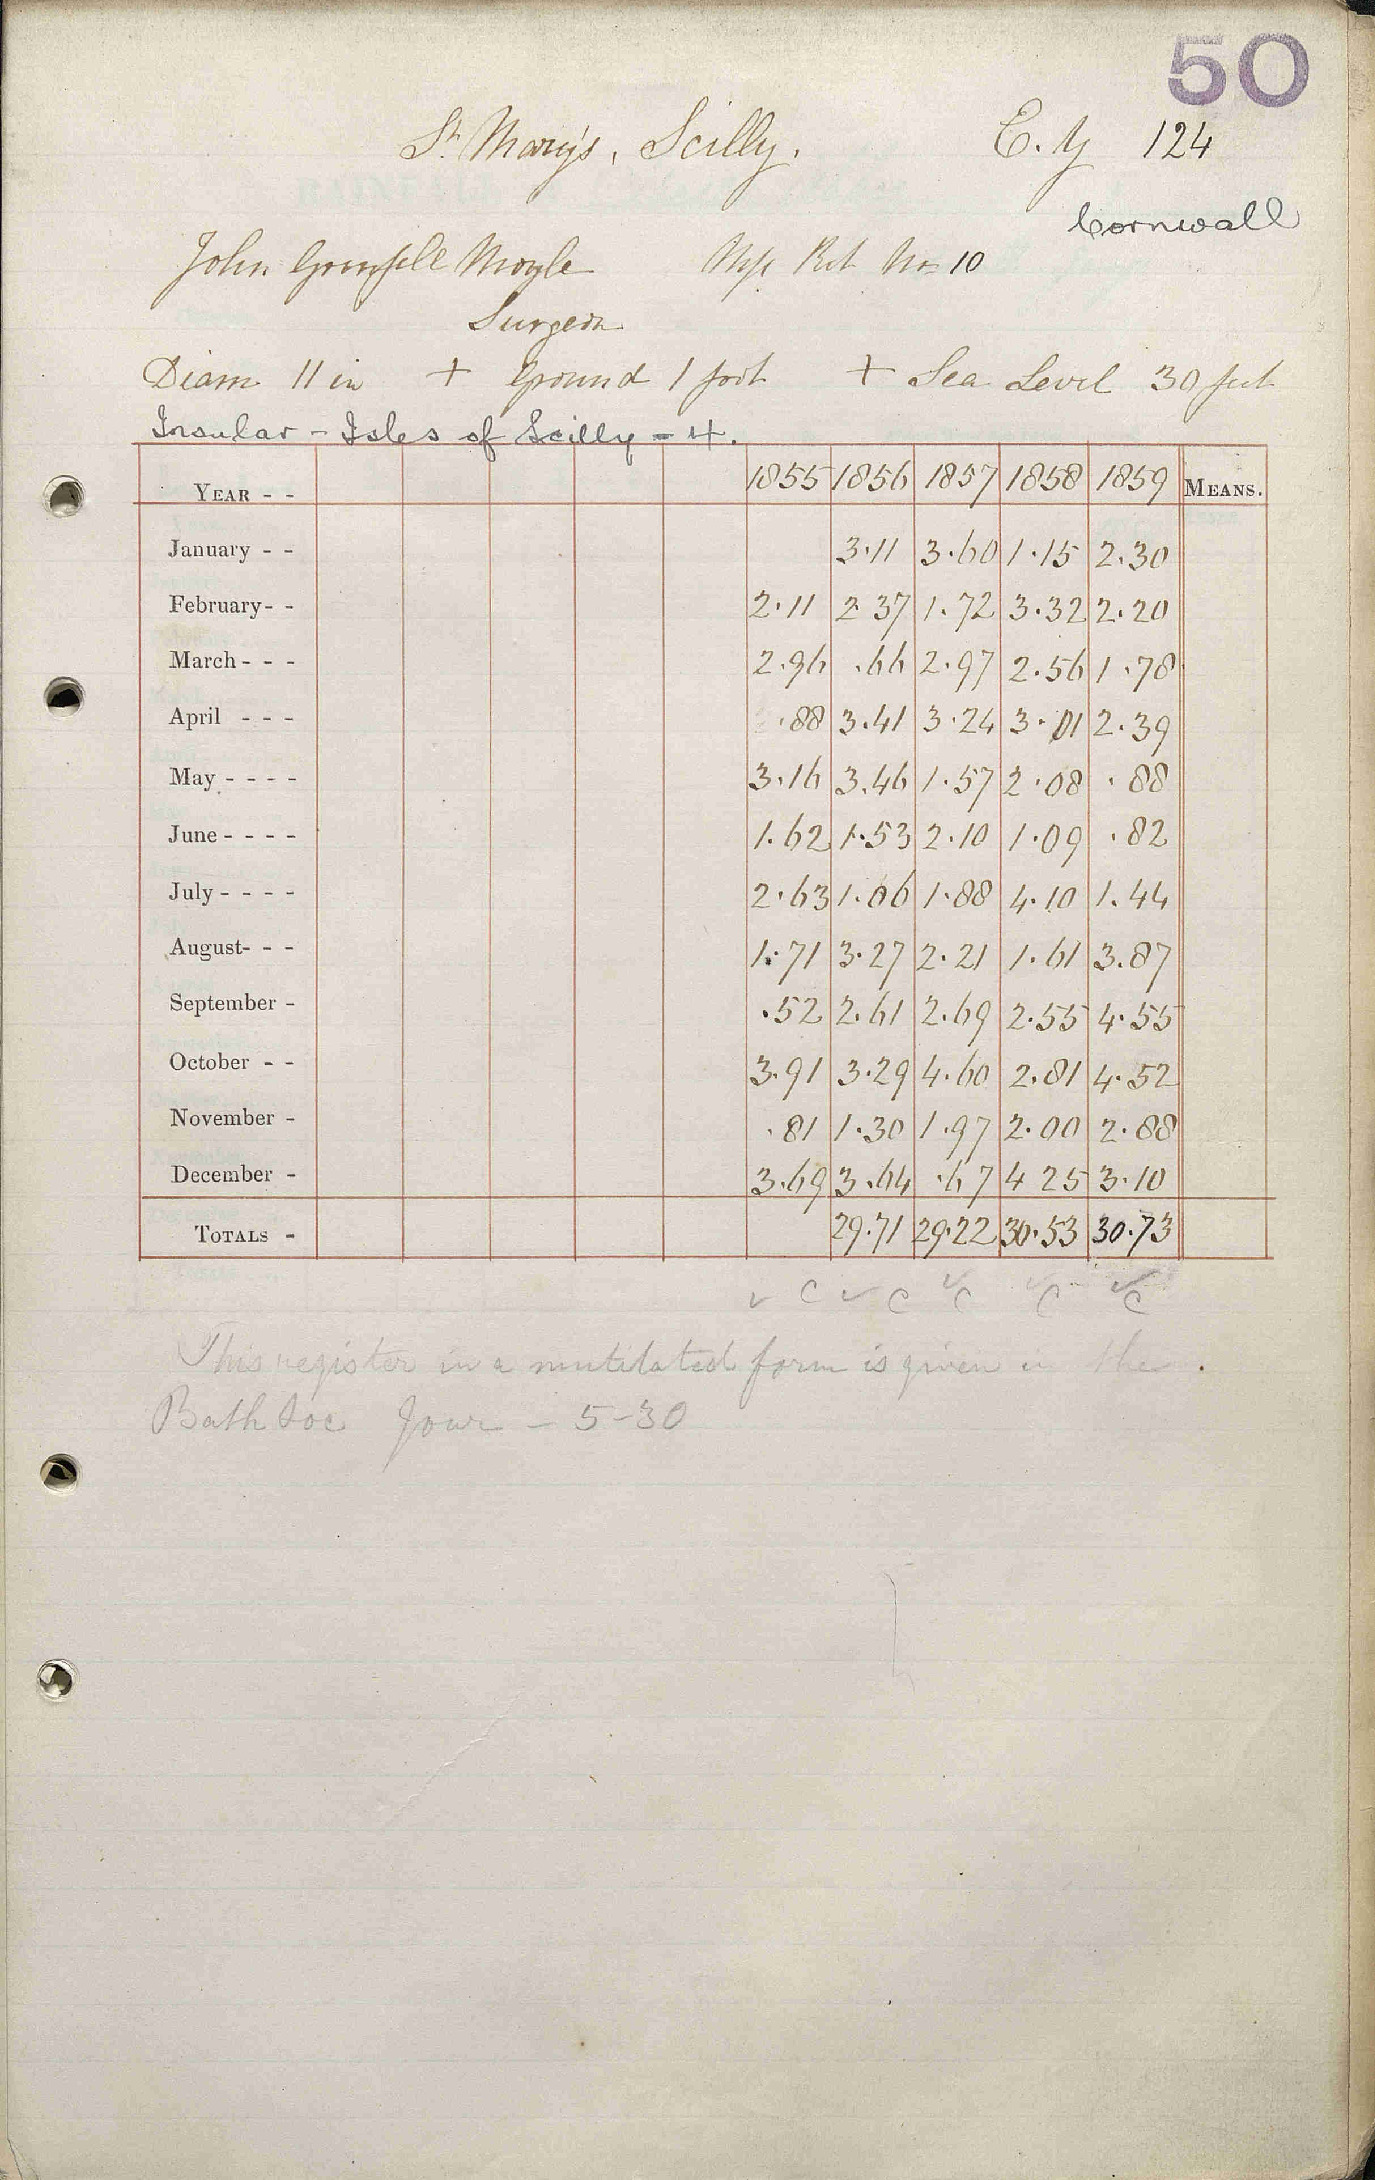 50
St. Mary's, Scilly. C. Y 124
Cornwall
John Grenfell Moyle Mss Ret No 10
Surgeon
Diam 11 in + Ground 1 foot + Sea Level 30 feet
Insular - Isles of Scilly - 4.
YEAR - - 1855 1856 1857 1858 1859 MEANS.
January - - 3.11 3.60 1.15 2.30
February- - 2.11 2 37 1.72 3.32 2.20
March - - - 2.96 .66 2.97 2.56 1.78
April - - - .88 3.41 3.24 3.01 2.39
May - - - - 3.16 3.46 1.57 2.08 .88
June - - - - 1.62 1.53 2.10 1.09 .82
July - - - - 2.63 1.06 1.88 4.10 1.44
August- - - 1.71 3.27 2.21 1.61 3.87
September - .52 2.61 2.69 2.55 4.55
October - - 3.91 3.29 4.60 2.81 4.52
November - .81 1.30 1.97 2.00 2.88
December - 3.69 3.64 .67 4 25 3.10
TOTALS - 29.71 29.22 30.53 30.73
✓ C ✓ C ✓ C ✓ C ✓ C
This register in a mutilated form is given in the
Bath Soc Jour - 5-30